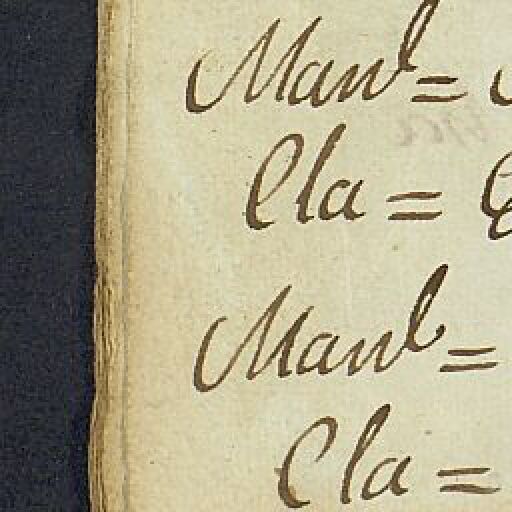 Manl =
Cla =
Manl =
Cla =